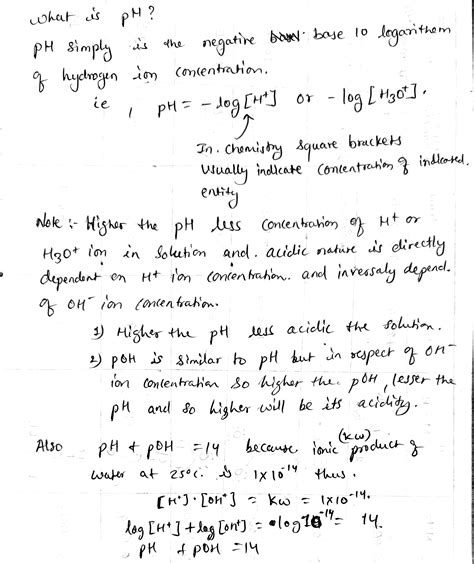 what is pH?
pH simply is the negative base 10 logarithem
of hydrogen ion concentration.
ie, pH = -log[H⁺] or -log[H₃O⁺].
In chemistry square brackets
usually indicate concentration of indicated.
entity
Note :- Higher the pH less concentration of H⁺ or
H₃O⁺ ion in solution and. acidic nature is directly
dependent on H⁺ ion concentration. and inversaly depend.
of OH⁻ ion concentration.
1) Higher the pH less acidic the solution.
2) pOH is similar to pH but in respect of OH⁻
ion concentration so higher the pOH, lesser the
pH and so higher will be its acidity.
(Kw)
Also pH + pOH = 14 because ionic product of
water at 25°c. is 1×10⁻¹⁴ thus.
[H⁺]·[OH⁻] = Kw = 1×10⁻¹⁴.
log[H⁺]+log[OH⁻] = log10⁻¹⁴ = 14.
pH + pOH = 14